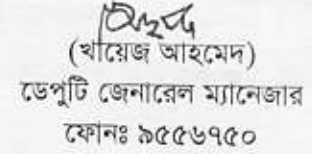 (খায়েজ আহমেদ)
ডেপুটি জেনারেল ম্যানেজার
ফোনঃ ৯৫৫৬৭৫০